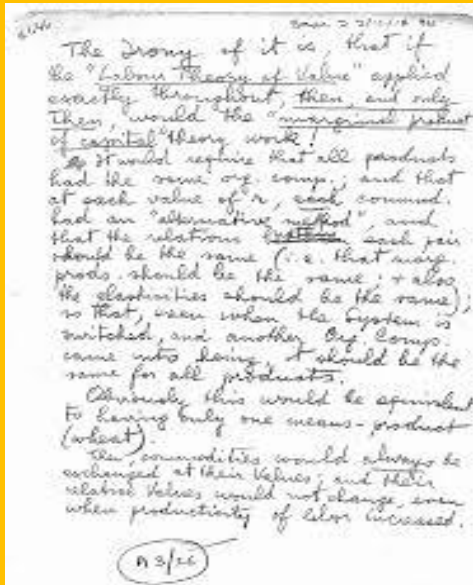 The Irony of it is, that if
the "Labour Theory of Value" applied
exactly throughout, then, and only
then, would the "marginal product
of capital" theory work!
It would require that all products
had the same org. comp., and that
at each value of r, each commod.
had an "alternative method", and
that the relations each pair
should be the same (i.e. that marg.
prods. should be the same + also
the elasticities should be the same),
so that, even when the System is
switched, and another Org. Comp.
came into being, it should be the
same for all products.
Obviously this would be equivalent
to having only one means-product
(wheat).
Then, commodities would always be
exchanged at their Values; and their
relative Values would not change, even
when productivity of labor increased.